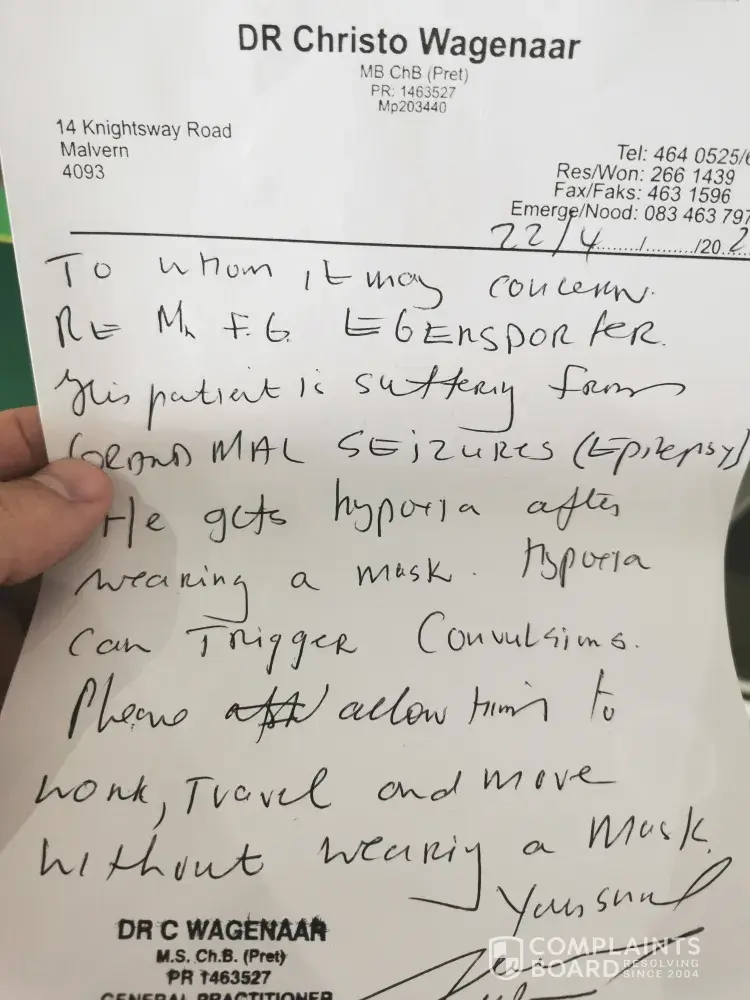 DR Christo Wagenaar
MB ChB (Pret)
PR: 1463527
Mp203440
14 Knightsway Road
Malvern
4093
Tel: 464 0525/6
Res/Won: 266 1439
Fax/Faks: 463 1596
Emerge/Nood: 083 463 797
22/4....../........./20.2
To whom it may concern.
RE Mr F.G. LEGENSPORTER.
This patient is suffering from
GRAND MAL SEIZURES (Epilepsy)
He gets hypoxia after
wearing a mask. Hypoxia
can TRIGGER Convulsions.
Please allow him to
work, Travel and move
without wearing a mask.
DR C WAGENAAR
M.S. Ch.B. (Pret)
PR 1463527
GENERAL PRACTITIONER
COMPLAINTS
BOARD RESOLVING
SINCE 2004